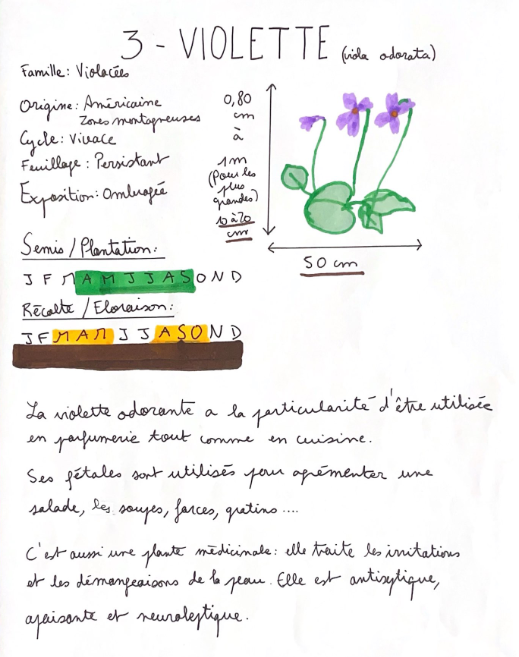 3 - VIOLETTE (viola odorata)
Famille: Violacées
Origine: Américaine
Zones montagneuses
Cycle: Vivace
Feuillage: Persistant
Exposition: Ombragée
0,80
cm
à
1m
(Pour les
plus
grandes)
10 à 20
cm
50 cm
Semis/Plantation:
J F M A M J J A S O N D
Récolte/Floraison:
J F M A M J J A S O N D
La violette odorante a la particularité d'être utilisée
en parfumerie tout comme en cuisine.
Ses pétales sont utilisés pour agrémenter une
salade, les soupes, farces, gratins ....
C'est aussi une plante médicinale: elle traite les irritations
et les démangeaisons de la peau. Elle est antiseptique,
apaisante et neuroleptique.